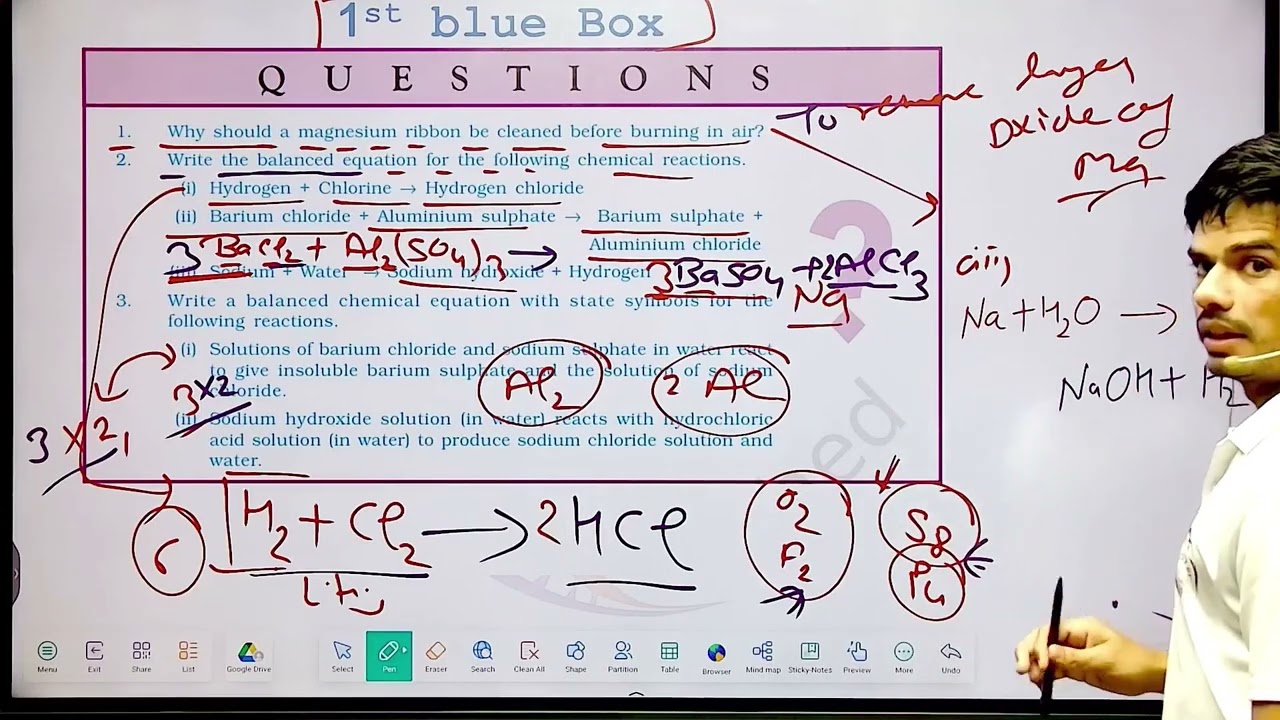 1st blue Box
QUESTIONS
1. Why should a magnesium ribbon be cleaned before burning in air?
2. Write the balanced equation for the following chemical reactions.
(i) Hydrogen + Chlorine → Hydrogen chloride
(ii) Barium chloride + Aluminium sulphate → Barium sulphate +
Aluminium chloride
3 BaCl2 + Al2(SO4)3 → 3BaSO4 + 2AlCl3
(iii) Sodium + Water → Sodium hydroxide + Hydrogen
Na
3. Write a balanced chemical equation with state symbols for the
following reactions.
(i) Solutions of barium chloride and sodium sulphate in water react
to give insoluble barium sulphate and the solution of sodium
chloride.
(ii) Sodium hydroxide solution (in water) reacts with hydrochloric
acid solution (in water) to produce sodium chloride solution and
water.
3×2
Al2
2 Al
3 × 2
6
H2 + Cl2 → 2HCl
O2
F2
S8
P4
To remove layer
Oxide of
Mg
(iii)
Na + H2O →
NaOH + H2
Menu
Exit
Share
List
Google Drive
Select
Pen
Eraser
Search
Clean All
Shape
Partition
Table
Browser
Mind map
Sticky-Notes
Preview
More
Undo